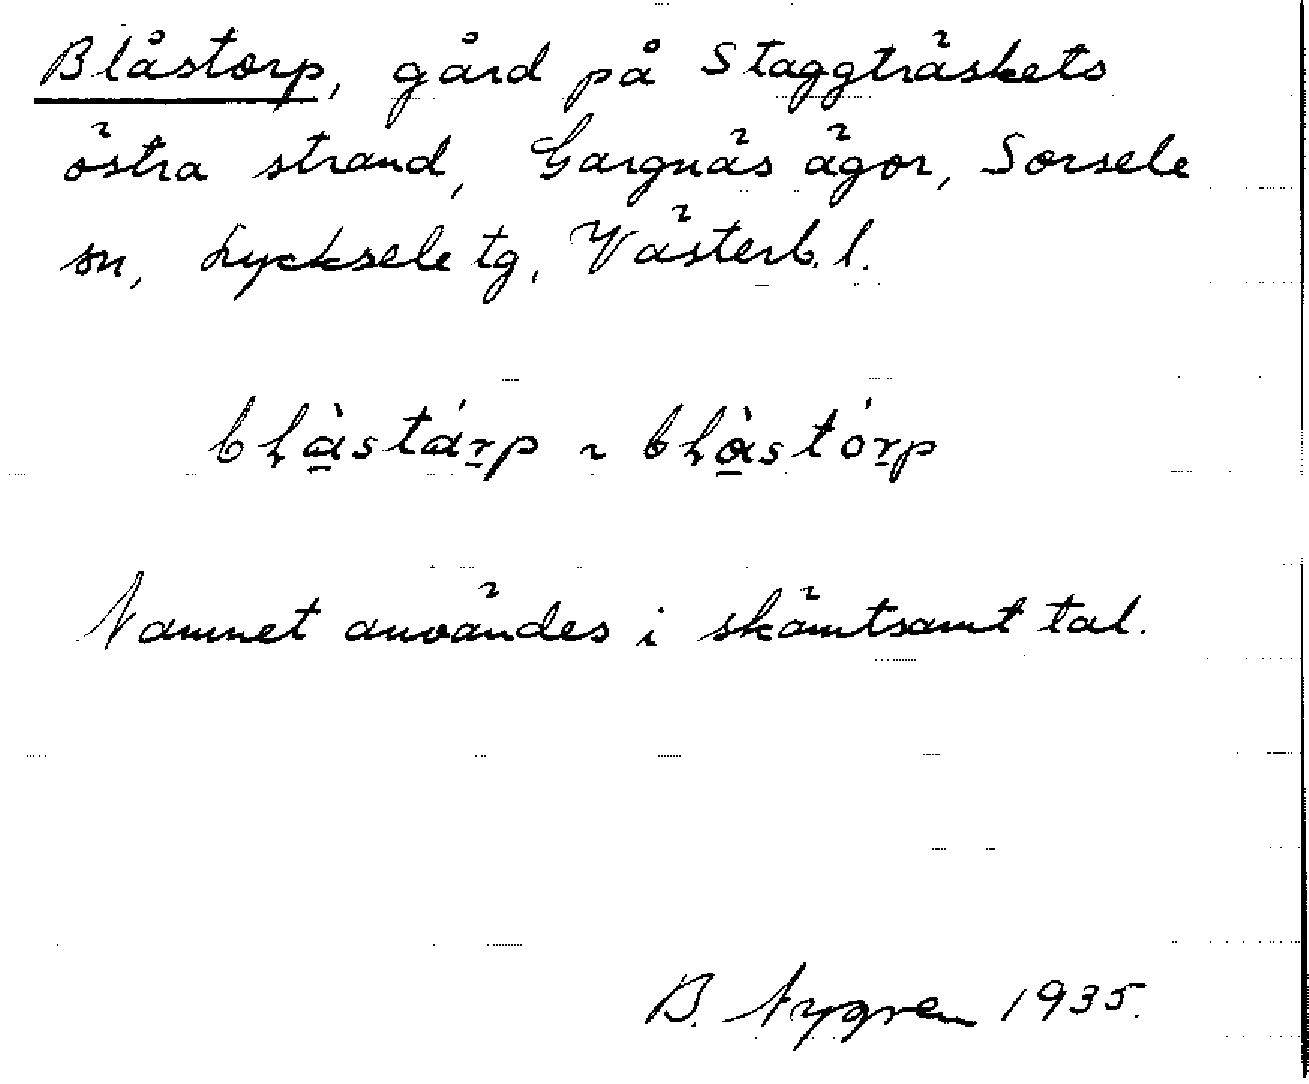 Blåstorp, gård på Staggträskets
östra strand, Gargnäs ägor, Sorsele
sn, Lycksele tg, Västerb. l.
Namnet användes i skämtsamt tal.
B. Nygren 1935.